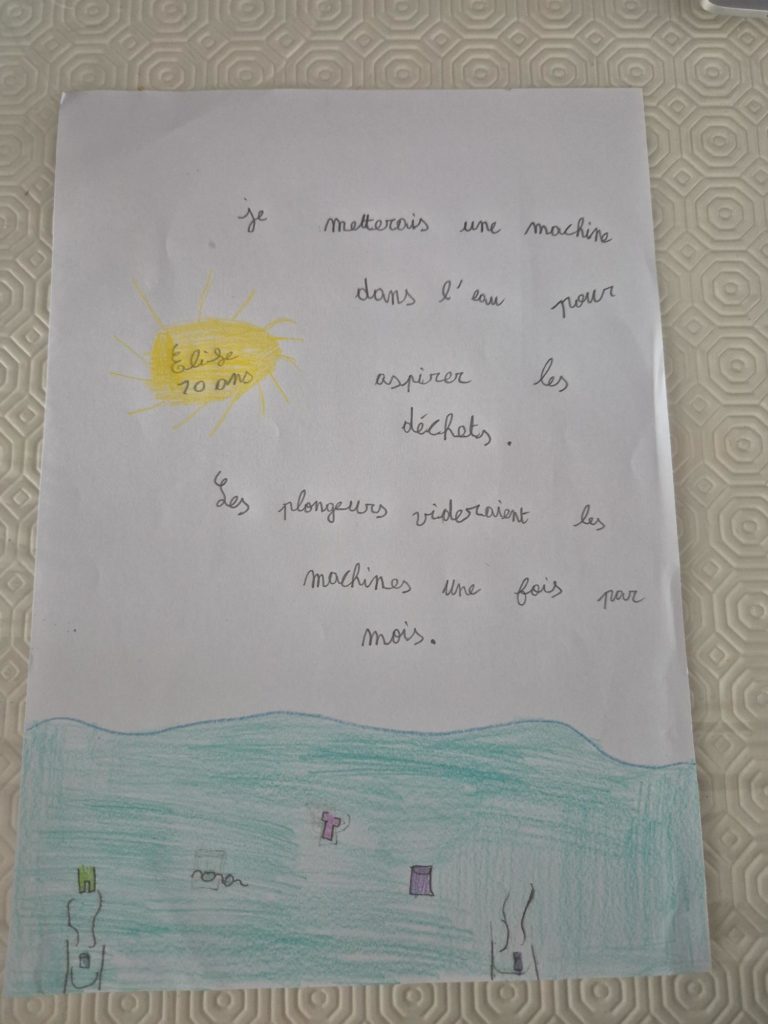 je metterais une machine
dans l'eau pour
Élise
10 ans
aspirer les
déchets.
Les plongeurs videraient les
machines une fois par
mois.